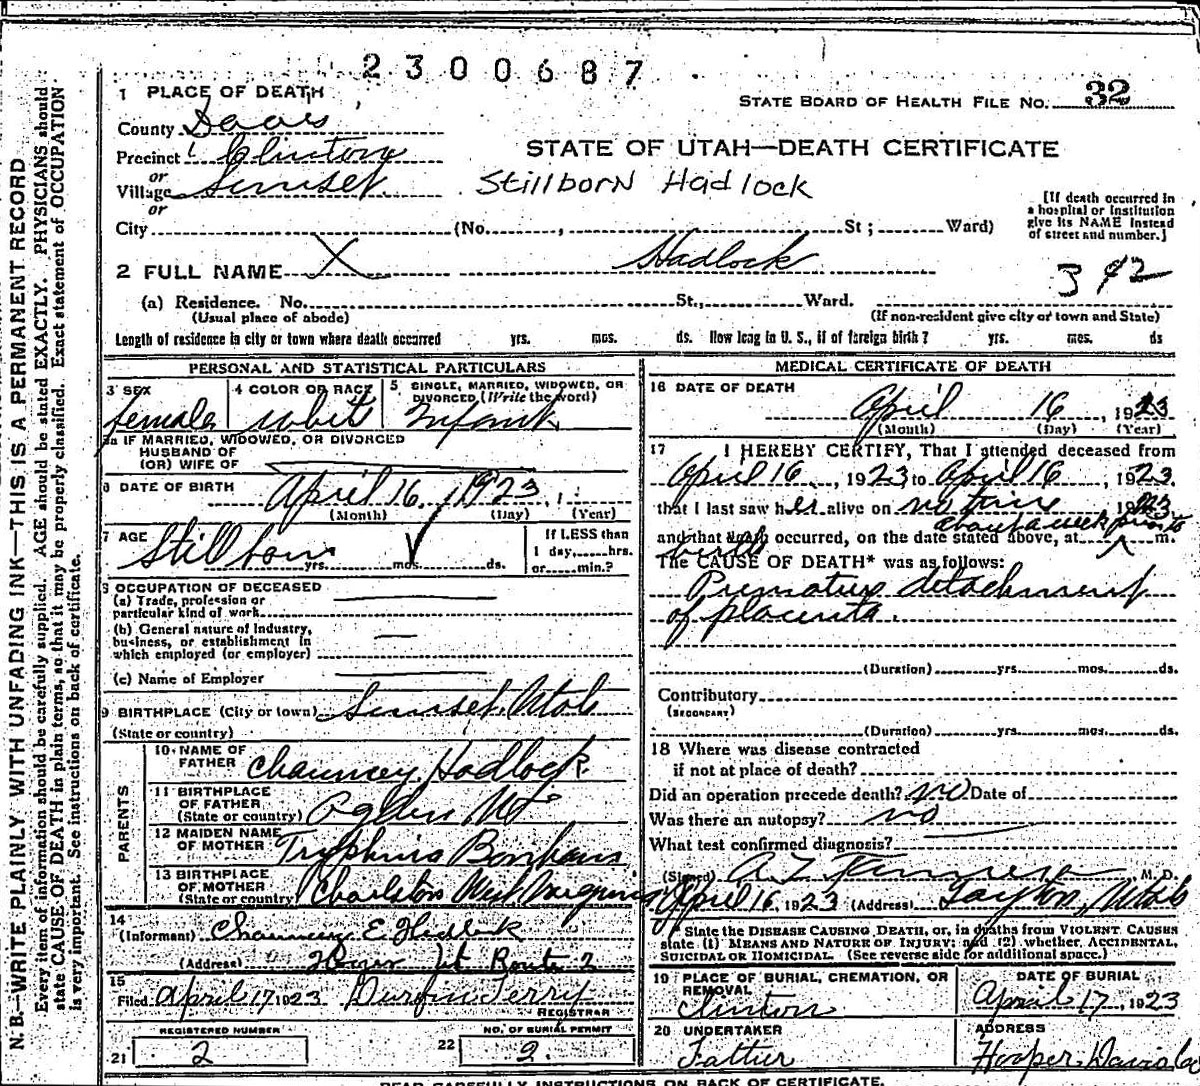 2300687
1 PLACE OF DEATH
STATE BOARD OF HEALTH FILE NO. 32
County Davis
STATE OF UTAH—DEATH CERTIFICATE
Precinct Clinton
or
Village Sunset
Stillborn Hadlock
or
[If death occurred in a hospital or institution give its NAME instead of street and number.]
City (No. , St ; Ward)
2 FULL NAME X Hadlock
(a) Residence. No. St., Ward.
(Usual place of abode) (If non-resident give city or town and State)
Length of residence in city or town where death occurred yrs. mos. ds. How long in U. S., if of foreign birth ? yrs. mos. ds
PERSONAL AND STATISTICAL PARTICULARS
3 SEX
female
4 COLOR OR RACE
white
5 SINGLE, MARRIED, WIDOWED, OR DIVORCED (Write the word)
Infant
5a IF MARRIED, WIDOWED, OR DIVORCED
HUSBAND OF
(OR) WIFE OF
6 DATE OF BIRTH April 16, 1923
(Month) (Day) (Year)
7 AGE
Stillborn yrs. mos. ds.
If LESS than
1 day, hrs.
or min.?
8 OCCUPATION OF DECEASED
(a) Trade, profession or
particular kind of work
(b) General nature of Industry,
business, or establishment in
which employed (or employer)
(c) Name of Employer
9 BIRTHPLACE (City or town) Sunset, Utah
(State or country)
PARENTS
10 NAME OF
FATHER Chauncey Hadlock
11 BIRTHPLACE
OF FATHER
(State or country) Ogden Ut
12 MAIDEN NAME
OF MOTHER
13 BIRTHPLACE
OF MOTHER
(State or country) Charleston West Virginia
14
(Informant) Chauncey E Hadlock
(Address) Route 2
15
Filed April 17, 1923 Terry
REGISTRAR
REGISTERED NUMBER
21 2
NO. OF BURIAL PERMIT
22 2
MEDICAL CERTIFICATE OF DEATH
16 DATE OF DEATH
April 16, 1923
(Month) (Day) (Year)
17 I HEREBY CERTIFY, That I attended deceased from
April 16, 1923 to April 16, 1923
that I last saw her alive on 1923
about a week prior to
and that death occurred, on the date stated above, at m.
birth
The CAUSE OF DEATH* was as follows:
Premature detachment
of placenta.
(Duration) yrs. mos. ds.
Contributory
(SECONDARY)
(Duration) yrs. mos. ds.
18 Where was disease contracted
if not at place of death?
Did an operation precede death? no Date of
Was there an autopsy? no
What test confirmed diagnosis?
(Signed) M. D.
April 16, 1923 (Address) Layton, Utah
* State the DISEASE CAUSING DEATH, or, in deaths from VIOLENT CAUSES
state (1) MEANS AND NATURE OF INJURY; and (2) whether ACCIDENTAL,
SUICIDAL OR HOMICIDAL. (See reverse side for additional space.)
19 PLACE OF BURIAL, CREMATION, OR
REMOVAL
Clinton
DATE OF BURIAL
April 17, 1923
20 UNDERTAKER
Father
ADDRESS
Hooper, Davis
READ CAREFULLY INSTRUCTIONS ON BACK OF CERTIFICATE.
N. B.—WRITE PLAINLY WITH UNFADING INK—THIS IS A PERMANENT RECORD
Every item of information should be carefully supplied. AGE should be stated EXACTLY. PHYSICIANS should
state CAUSE OF DEATH in plain terms, so that it may be properly classified. Exact statement of OCCUPATION
is very important. See instructions on back of certificate.